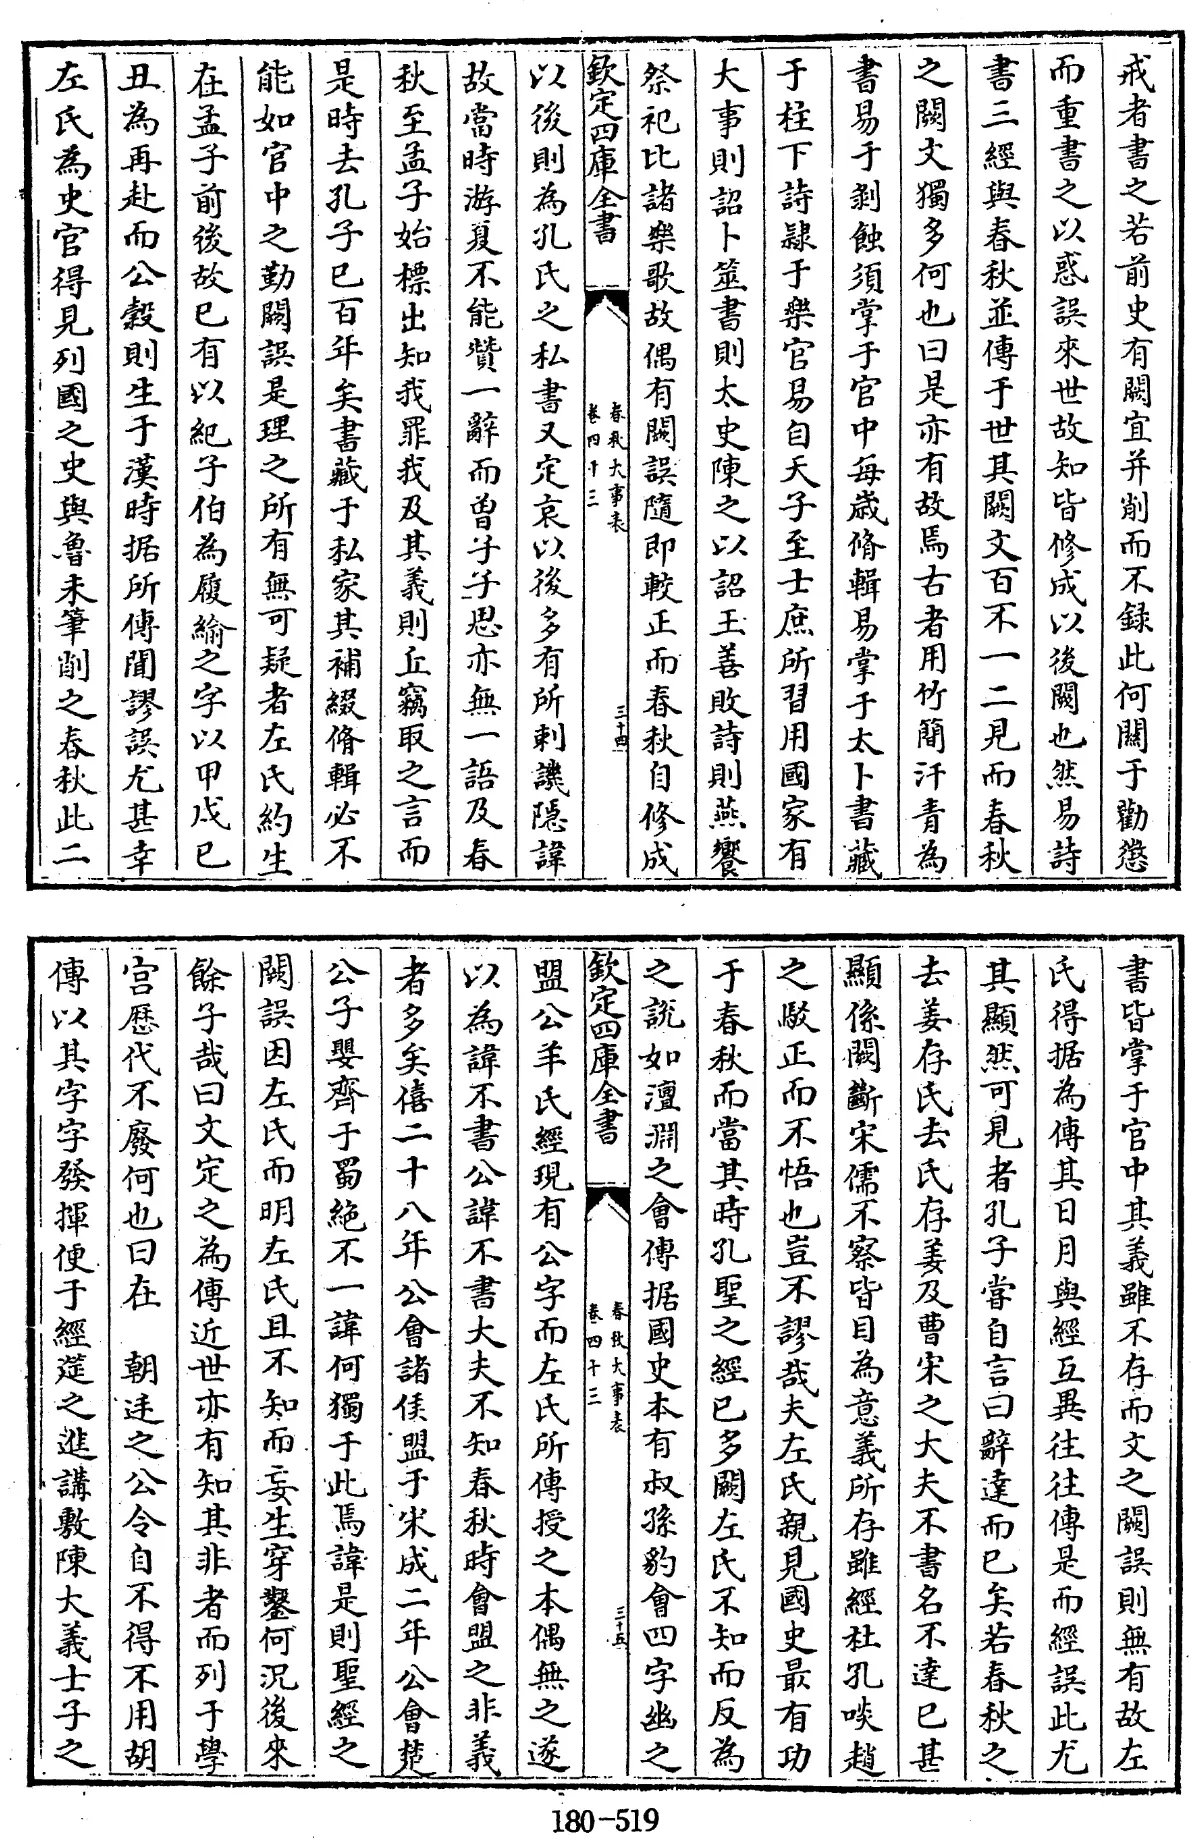 戒者書之若前史有闕宜并削而不録此何關于勸懲
而重書之以惑誤來世故知皆修成以後闕也然易詩
書三經與春秋並傳于世其闕文百不一二見而春秋
之闕文獨多何也曰是亦有故焉古者用竹簡汗青為
書易于剝蝕須掌于官中每歲脩輯易掌于太卜書藏
于柱下詩隷于樂官易自天子至士庶所習用國家有
大事則詔卜筮書則太史陳之以詔王善敗詩則燕饗
祭祀比諸樂歌故偶有闕誤隨即較正而春秋自修成
欽定四庫全書
春秋大事表
卷四十三
三十四
以後則為孔氏之私書又定哀以後多有所刺譏隱諱
故當時游夏不能贊一辭而曾子子思亦無一語及春
秋至孟子始標出知我罪我及其義則丘竊取之言而
是時去孔子已百年矣書藏于私家其補綴脩輯必不
能如官中之勤闕誤是理之所有無可疑者左氏約生
在孟子前後故已有以紀子伯為履緰之字以甲戌己
丑為再赴而公穀則生于漢時据所傳聞謬誤尤甚幸
左氏為史官得見列國之史與魯未筆削之春秋此二
書皆掌于官中其義雖不存而文之闕誤則無有故左
氏得据為傳其日月與經互異往往傳是而經誤此尤
其顯然可見者孔子嘗自言曰辭達而已矣若春秋之
去姜存氏去氏存姜及曹宋之大夫不書名不達已甚
顯係闕斷宋儒不察皆目為意義所存雖經杜孔啖趙
之駁正而不悟也豈不謬哉夫左氏親見國史最有功
于春秋而當其時孔聖之經已多闕左氏不知而反為
之說如澶淵之會傳据國史本有叔孫豹會四字幽之
欽定四庫全書
春秋大事表
卷四十三
三十五
盟公羊氏經現有公字而左氏所傳授之本偶無之遂
以為諱不書公諱不書大夫不知春秋時會盟之非義
者多矣僖二十八年公會諸侯盟于宋成二年公會楚
公子嬰齊于蜀絶不一諱何獨于此焉諱是則聖經之
闕誤因左氏而明左氏且不知而妄生穿鑿何況後來
餘子哉曰文定之為傳近世亦有知其非者而列于學
宮歴代不廢何也曰在 朝廷之公令自不得不用胡
傳以其字字發揮便于經筵之進講敷陳大義士子之
180-519